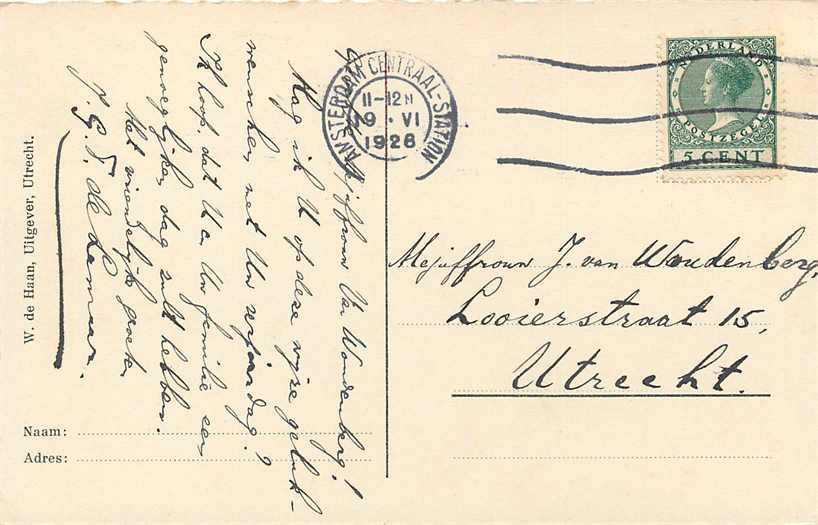 Geachte Mejuffrouw Van Woudenberg!
Mag ik U op deze wijze geluk-
wenschen met Uw verjaardag?
Ik hoop, dat U en Uw familie een
genoeglijken dag zult hebben.
Met vriendelijke groeten
J. G. F. de
W. de Haan, Uitgever, Utrecht.
Naam:
Adres:
AMSTERDAM CENTRAAL-STATION
11-12 N
19 · VI
1926
NEDERLAND
POSTZEGEL
5 CENT
Mejuffrouw J. van Woudenberg,
Looierstraat 15,
Utrecht.